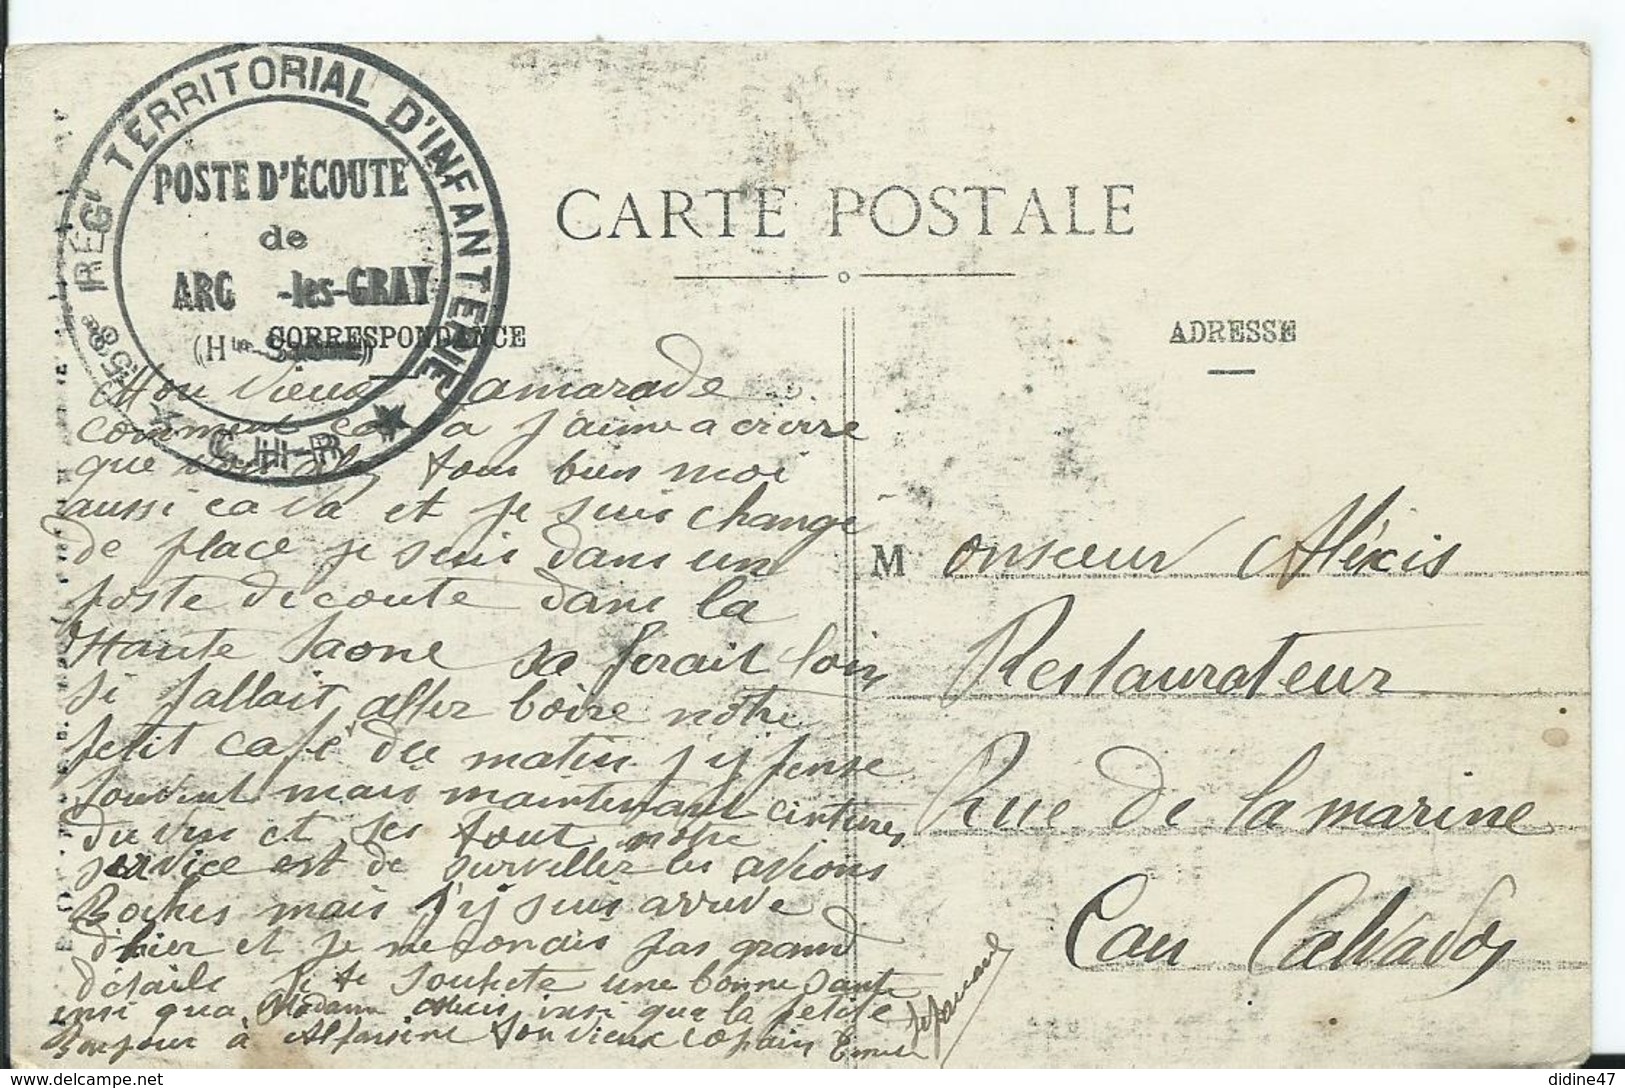 RÉGt TERRITORIAL D'INFANTERIE
POSTE D'ÉCOUTE
de
ARC -les-GRAY
(Hte-
CARTE POSTALE
CORRESPONDANCE
ADRESSE
Mon vieux Camarade
comment ca va j'aime a croire
que tous bien moi
aussi ca va et je suis changé
de place je suis dans un
poste decoute dans la
Haute Saone sa ferait loin
si fallait aller boire notre
petit café du matin j'y pense
souvent mais maintenant cinture
du vin et ses tout notre
service est de surveiller les avions
Boches mais j'y suis arrive
d'hier et je ne conais pas grand
détails je te souhete une bonne sante
insi qua Madame Alexis insi que la petite
Bonjour à Alfonsine ton vieux copain
Monsieur Aléxis
Restaurateur
Rue de la marine
Caen Calvados
didine47